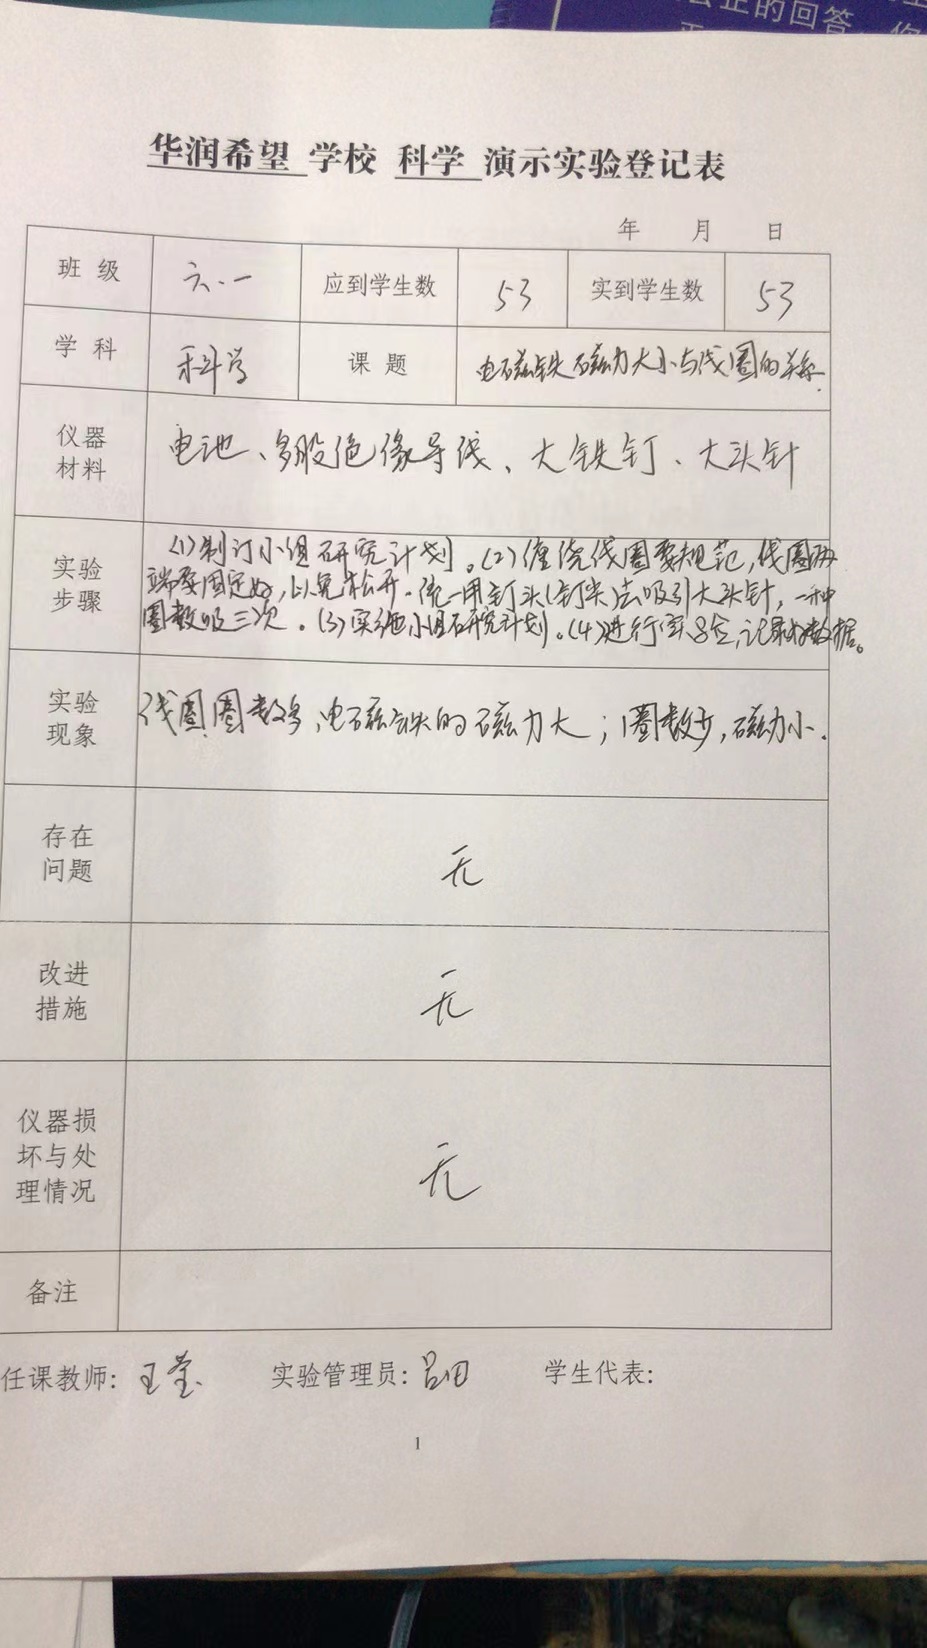 公正的回答，您
华润希望 学校 科学 演示实验登记表
年 月 日
班 级 六.一 应到学生数 53 实到学生数 53
学 科 科学 课 题 电磁铁磁力大小与线圈的关系.
仪器材料 电池、多股绝缘导线、大铁钉、大头针
实验步骤 (1)制订小组研究计划。(2)缠绕线圈要规范，线圈两
端要固定好，以免松开。统一用钉头(钉尖)去吸引大头针，一种
圈数吸三次。(3)实施小组研究计划。(4)进行实验，记录好数据。
实验现象 线圈圈数多,电磁铁的磁力大；圈数少，磁力小.
存在问题 无
改进措施 无
仪器损坏与处理情况 无
备注
任课教师：王莹 实验管理员：吕田 学生代表：
1